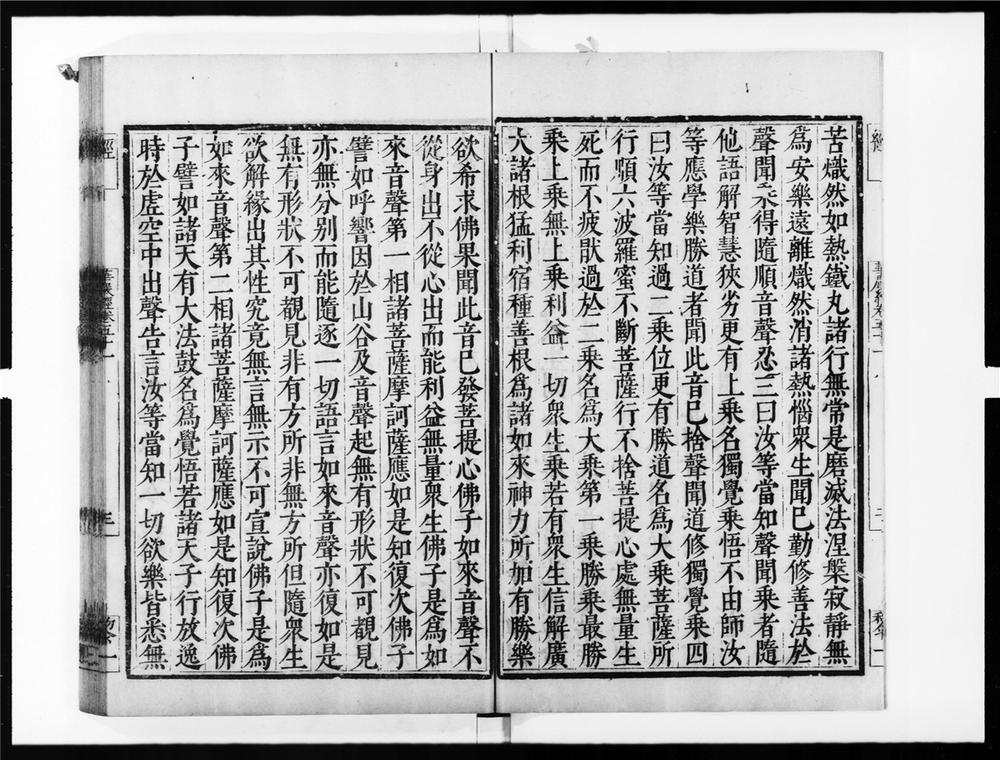 苦熾然如熱鐵丸諸行無常是磨滅法涅槃寂靜無
為安樂遠離熾然消諸熱惱衆生聞已勤修善法於
聲聞乘得隨順音聲忍三曰汝等當知聲聞乘者隨
他語解智慧狹劣更有上乘名獨覺乘悟不由師汝
等應學樂勝道者聞此音已捨聲聞道修獨覺乘四
曰汝等當知過二乘位更有勝道名爲大乘菩薩所
行順六波羅蜜不斷菩薩行不捨菩提心處無量生
死而不疲猒過於二乘名爲大乘第一乘勝乘最勝
乘上乘無上乘利益一切衆生乘若有衆生信解廣
大諸根猛利宿種善根爲諸如來神力所加有勝樂
欲希求佛果聞此音已發菩提心佛子如來音聲不
從身出不從心出而能利益無量衆生佛子是爲如
來音聲第一相諸菩薩摩訶薩應如是知復次佛子
譬如呼響因於山谷及音聲起無有形狀不可覩見
亦無分別而能隨逐一切語言如來音聲亦復如是
無有形狀不可覩見非有方所非無方所但隨衆生
欲解緣出其性究竟無言無示不可宣說佛子是爲
如來音聲第二相諸菩薩摩訶薩應如是知復次佛
子譬如諸天有大法鼓名爲覺悟若諸天子行放逸
時於虛空中出聲告言汝等當知一切欲樂皆悉無
經
華嚴經卷五十一